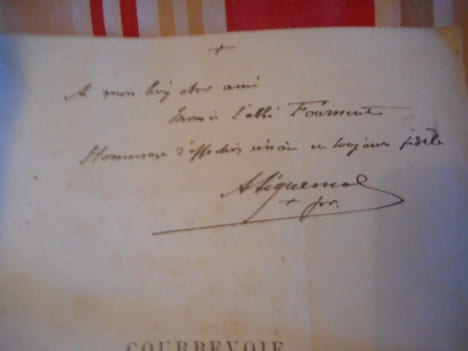 +
A mon bien cher ami
l'abbé Fourment
Hommage d'affection sincère et toujours fidèle
+ pr.
COURBEVOIE